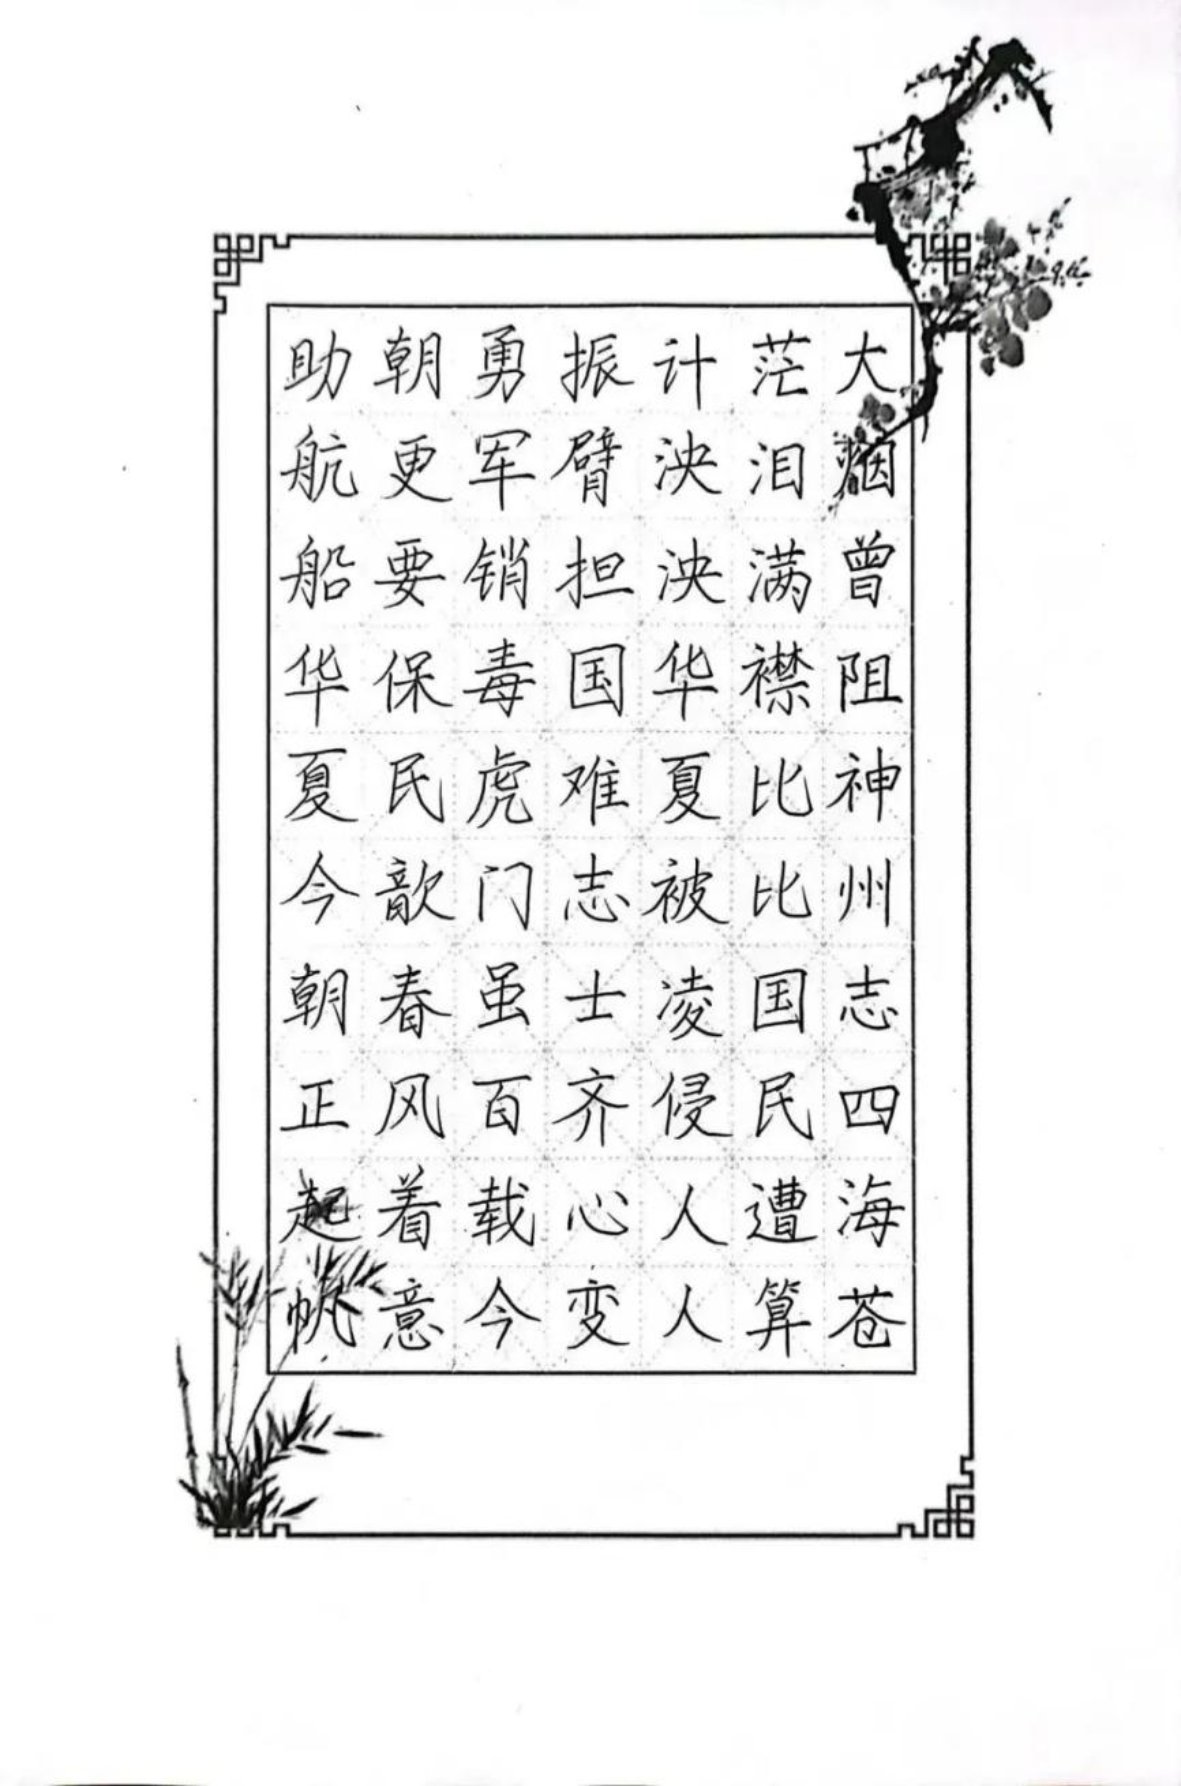 大烟曾阻神州志四海苍
茫泪满襟比比国民遭算
计泱泱华夏被凌侵人人
振臂担国难志士齐心变
勇军销毒虎门虽百载今
朝更要保民歆春风着意
助航船华夏今朝正起帆